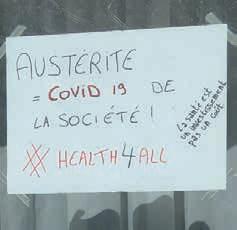 AUSTÉRITÉ
= COVID 19 DE
LA SOCIÉTÉ !
La santé est
un investissement
pas un coût
# HEALTH4ALL